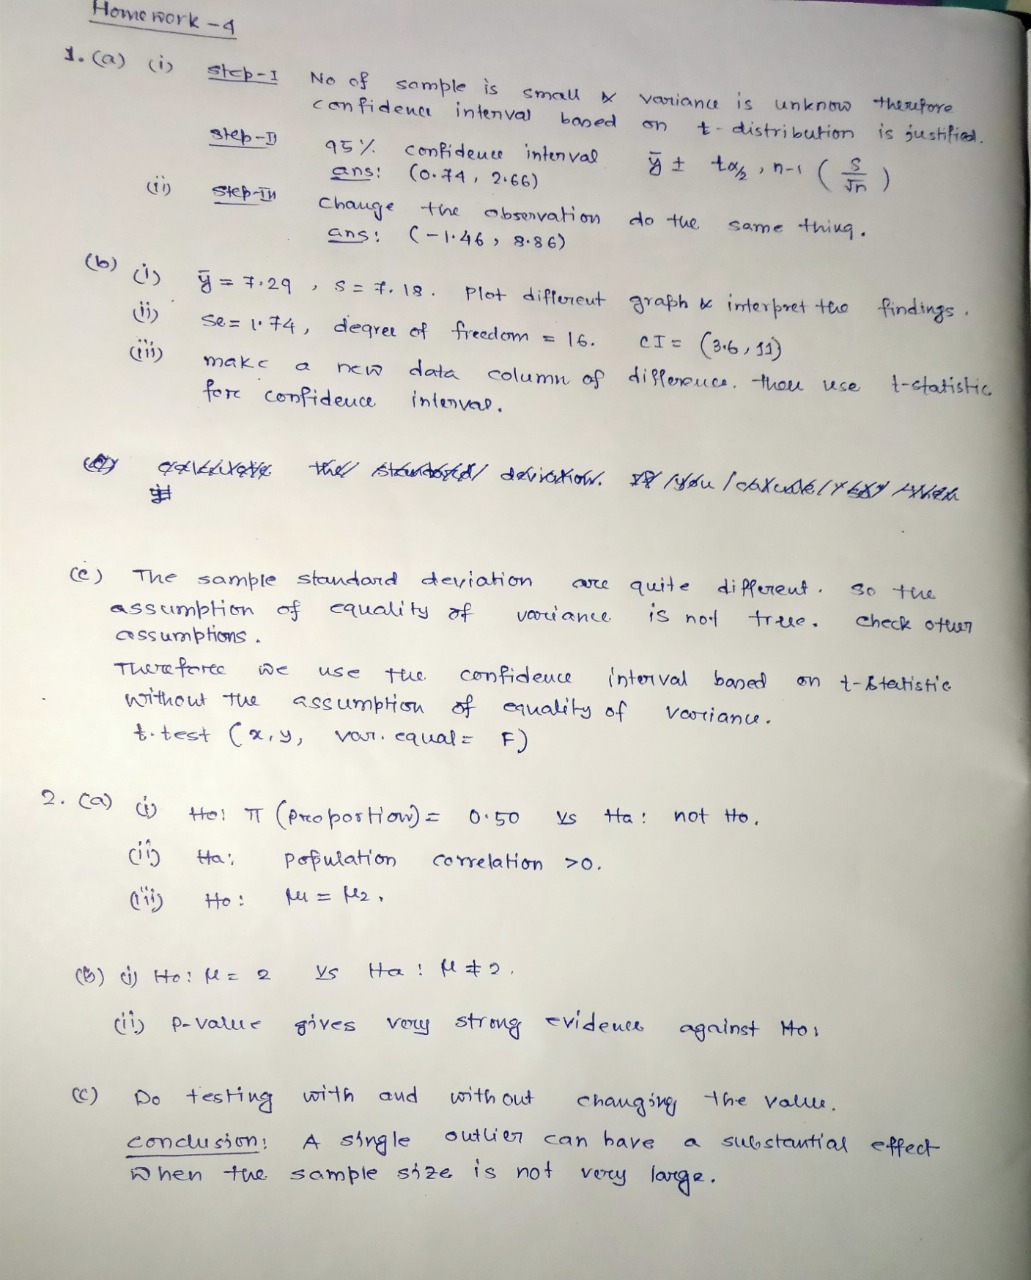 Homework - 4
1. (a) (i) Step-I No of sample is small & variance is unknow therefore
confidence interval based on t-distribution is justified.
Step-II 95% confidence interval ȳ ± tα/2, n-1 (s/√n)
ans: (0.74, 2.66)
(ii) Step-III Change the observation do the same thing.
ans: (-1.46, 8.86)
(b) (i) ȳ = 7.29, S = 7.18. Plot different graph & interpret the findings.
(ii) Se = 1.74, degree of freedom = 16. CI = (3.6, 11)
(iii) make a new data column of difference. then use t-statistic
for confidence interval.
the standard deviation. If you
(c) The sample standard deviation are quite different. So the
assumption of equality of variance is not true. Check other
assumptions.
Therefore we use the confidence interval based on t-statistic
without the assumption of equality of variance.
t.test (x, y, var.equal = F)
2. (a) (i) Ho: π (proportion) = 0.50 vs Ha: not Ho.
(ii) Ha: Population correlation >0.
(iii) Ho: μ1 = μ2,
(b) (i) Ho: μ = 2 vs Ha: μ ≠ 2.
(ii) P-value gives very strong evidence against Ho:
(c) Do testing with and without changing the value.
conclusion: A single outlier can have a substantial effect
when the sample size is not very large.